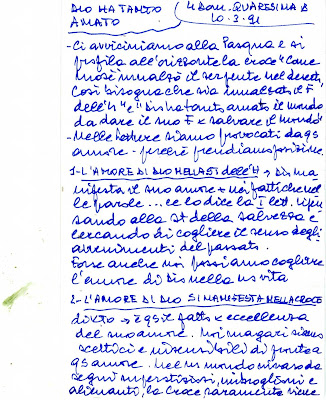 DIO HA TANTO AMATO
4 DOM. QUARESIMA B
10.3.91
- Ci avviciniamo alla Pasqua e si
profila all'orizzonte la croce "Come
Mosè innalzò il serpente nel deserto,
così bisogna che sia innalzato il F.
dell'H" e "Dio ha tanto amato il mondo
da dare il suo F x salvare il mondo"
- Nelle letture siamo provocati da qs
amore - perché prendiamo posizione.
1- L'AMORE DI DIO NELLA ST dell'H → Dio ma
nifesta il suo amore + nei fatti che nel
le parole... ce lo dice la I lett. ripen
sando alla st della salvezza e
cercando di cogliere il senso degli
avvenimenti del passato.
Forse anche noi possiamo cogliere
l'amore di Dio nella ns vita
2- L'AMORE DI DIO SI MANIFESTA NELLA CROCE
di xto → è qs il fatto x eccellenza
del suo amore. Noi magari siamo
scettici e insensibili di fronte a
qs amore. Nel ns mondo invaso da
segni superstiziosi, imbroglioni e
alienanti, la Croce raramente viene